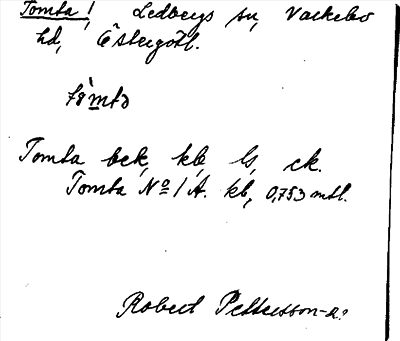 Tomta, Ledbergs sn, Valkebo
hd, Östergötl.
tòmta
Tomta bek, kb, ls, ek.
Tomta No 1 A. kb, 0,753 mtl.
Robert Pettersson